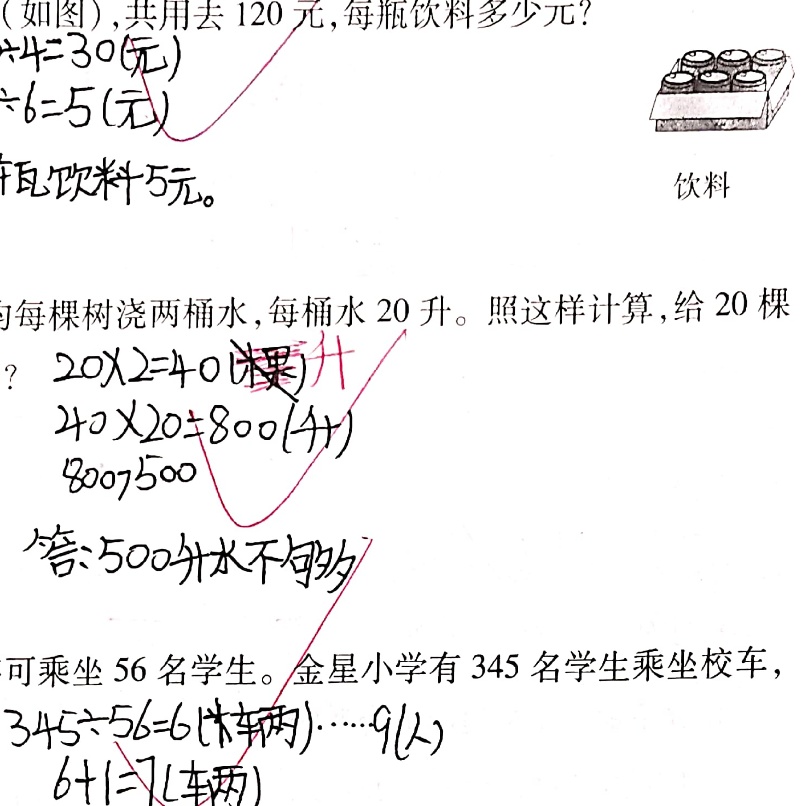 (如图),共用去 120 元,每瓶饮料多少元?
÷4=30(元)
÷6=5(元)
瓶饮料5元。
饮料
均每棵树浇两桶水,每桶水 20 升。照这样计算,给 20 棵
? 20×2=40(棵)升
40×20=800(升)
800>500
答:500升水不够
可乘坐 56 名学生。金星小学有 345 名学生乘坐校车,
345÷56=6(辆)……9(人)
6+1=7(辆)